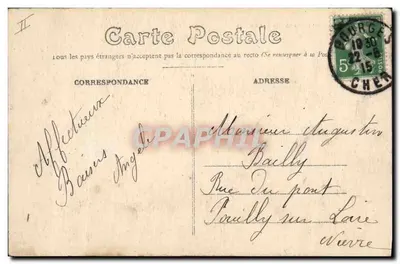 II
Carte Postale
Tous les pays étrangers n'acceptent pas la correspondance au recto (Se renseigner à la Poste)
CORRESPONDANCE
ADRESSE
BOURGES
22 -6
15
CHER
5
Affectueux
Baisers
Angèle
Monsieur Augustin
Bailly
Rue du pont
Pouilly sur Loire
Nièvre